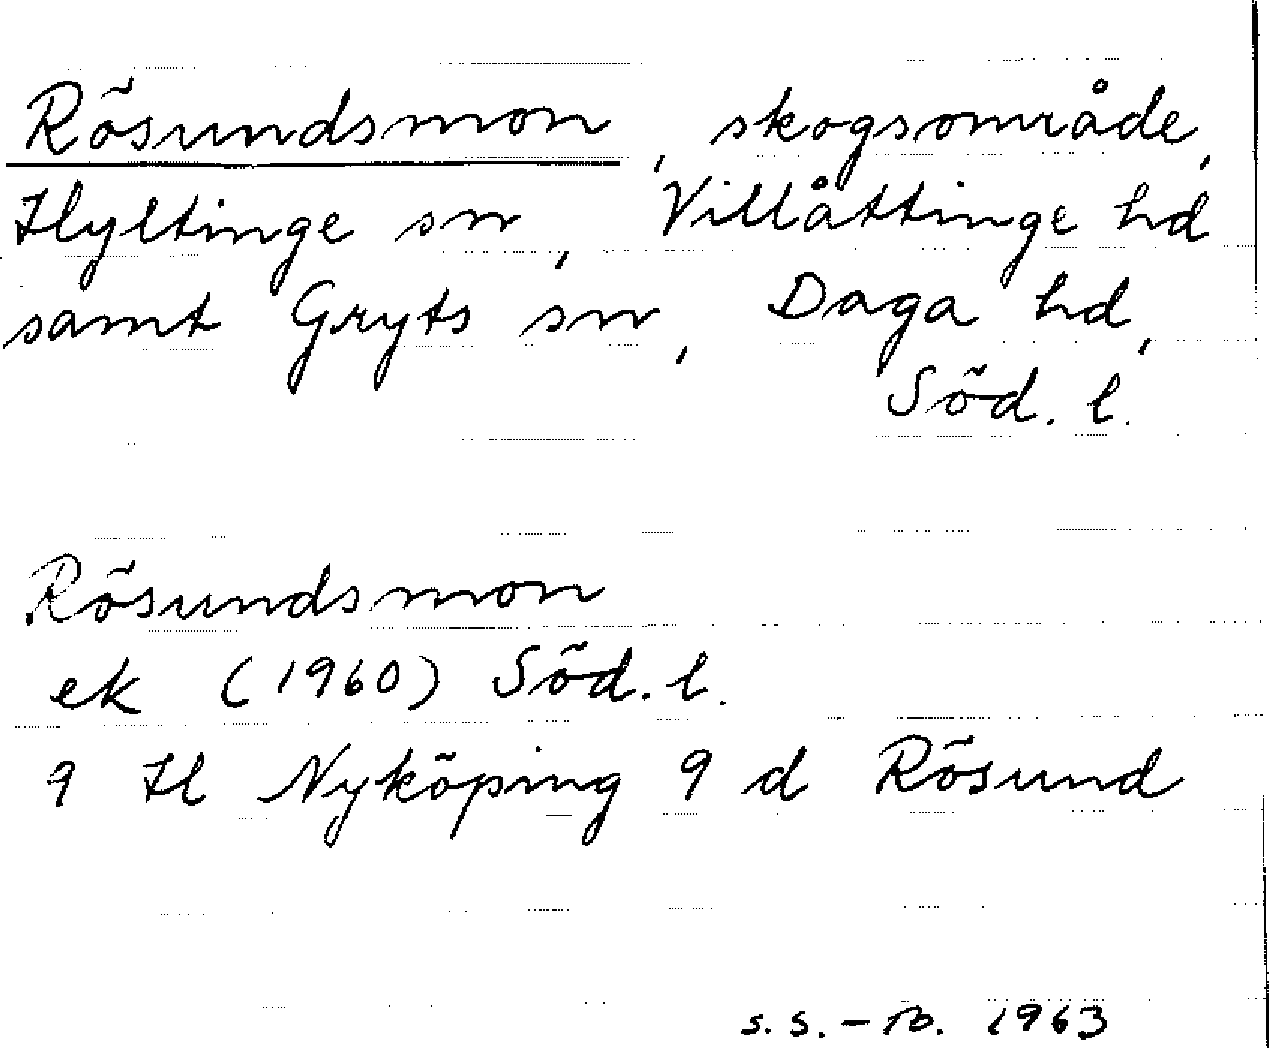 Rösundsmon, skogsområde,
Hyltinge sn, Villåttinge hd
samt Gryts sn, Daga hd,
Söd. l.
Rösundsmon
ek (1960) Söd. l.
9 H Nyköping 9 d Rösund
s. s. – 1963